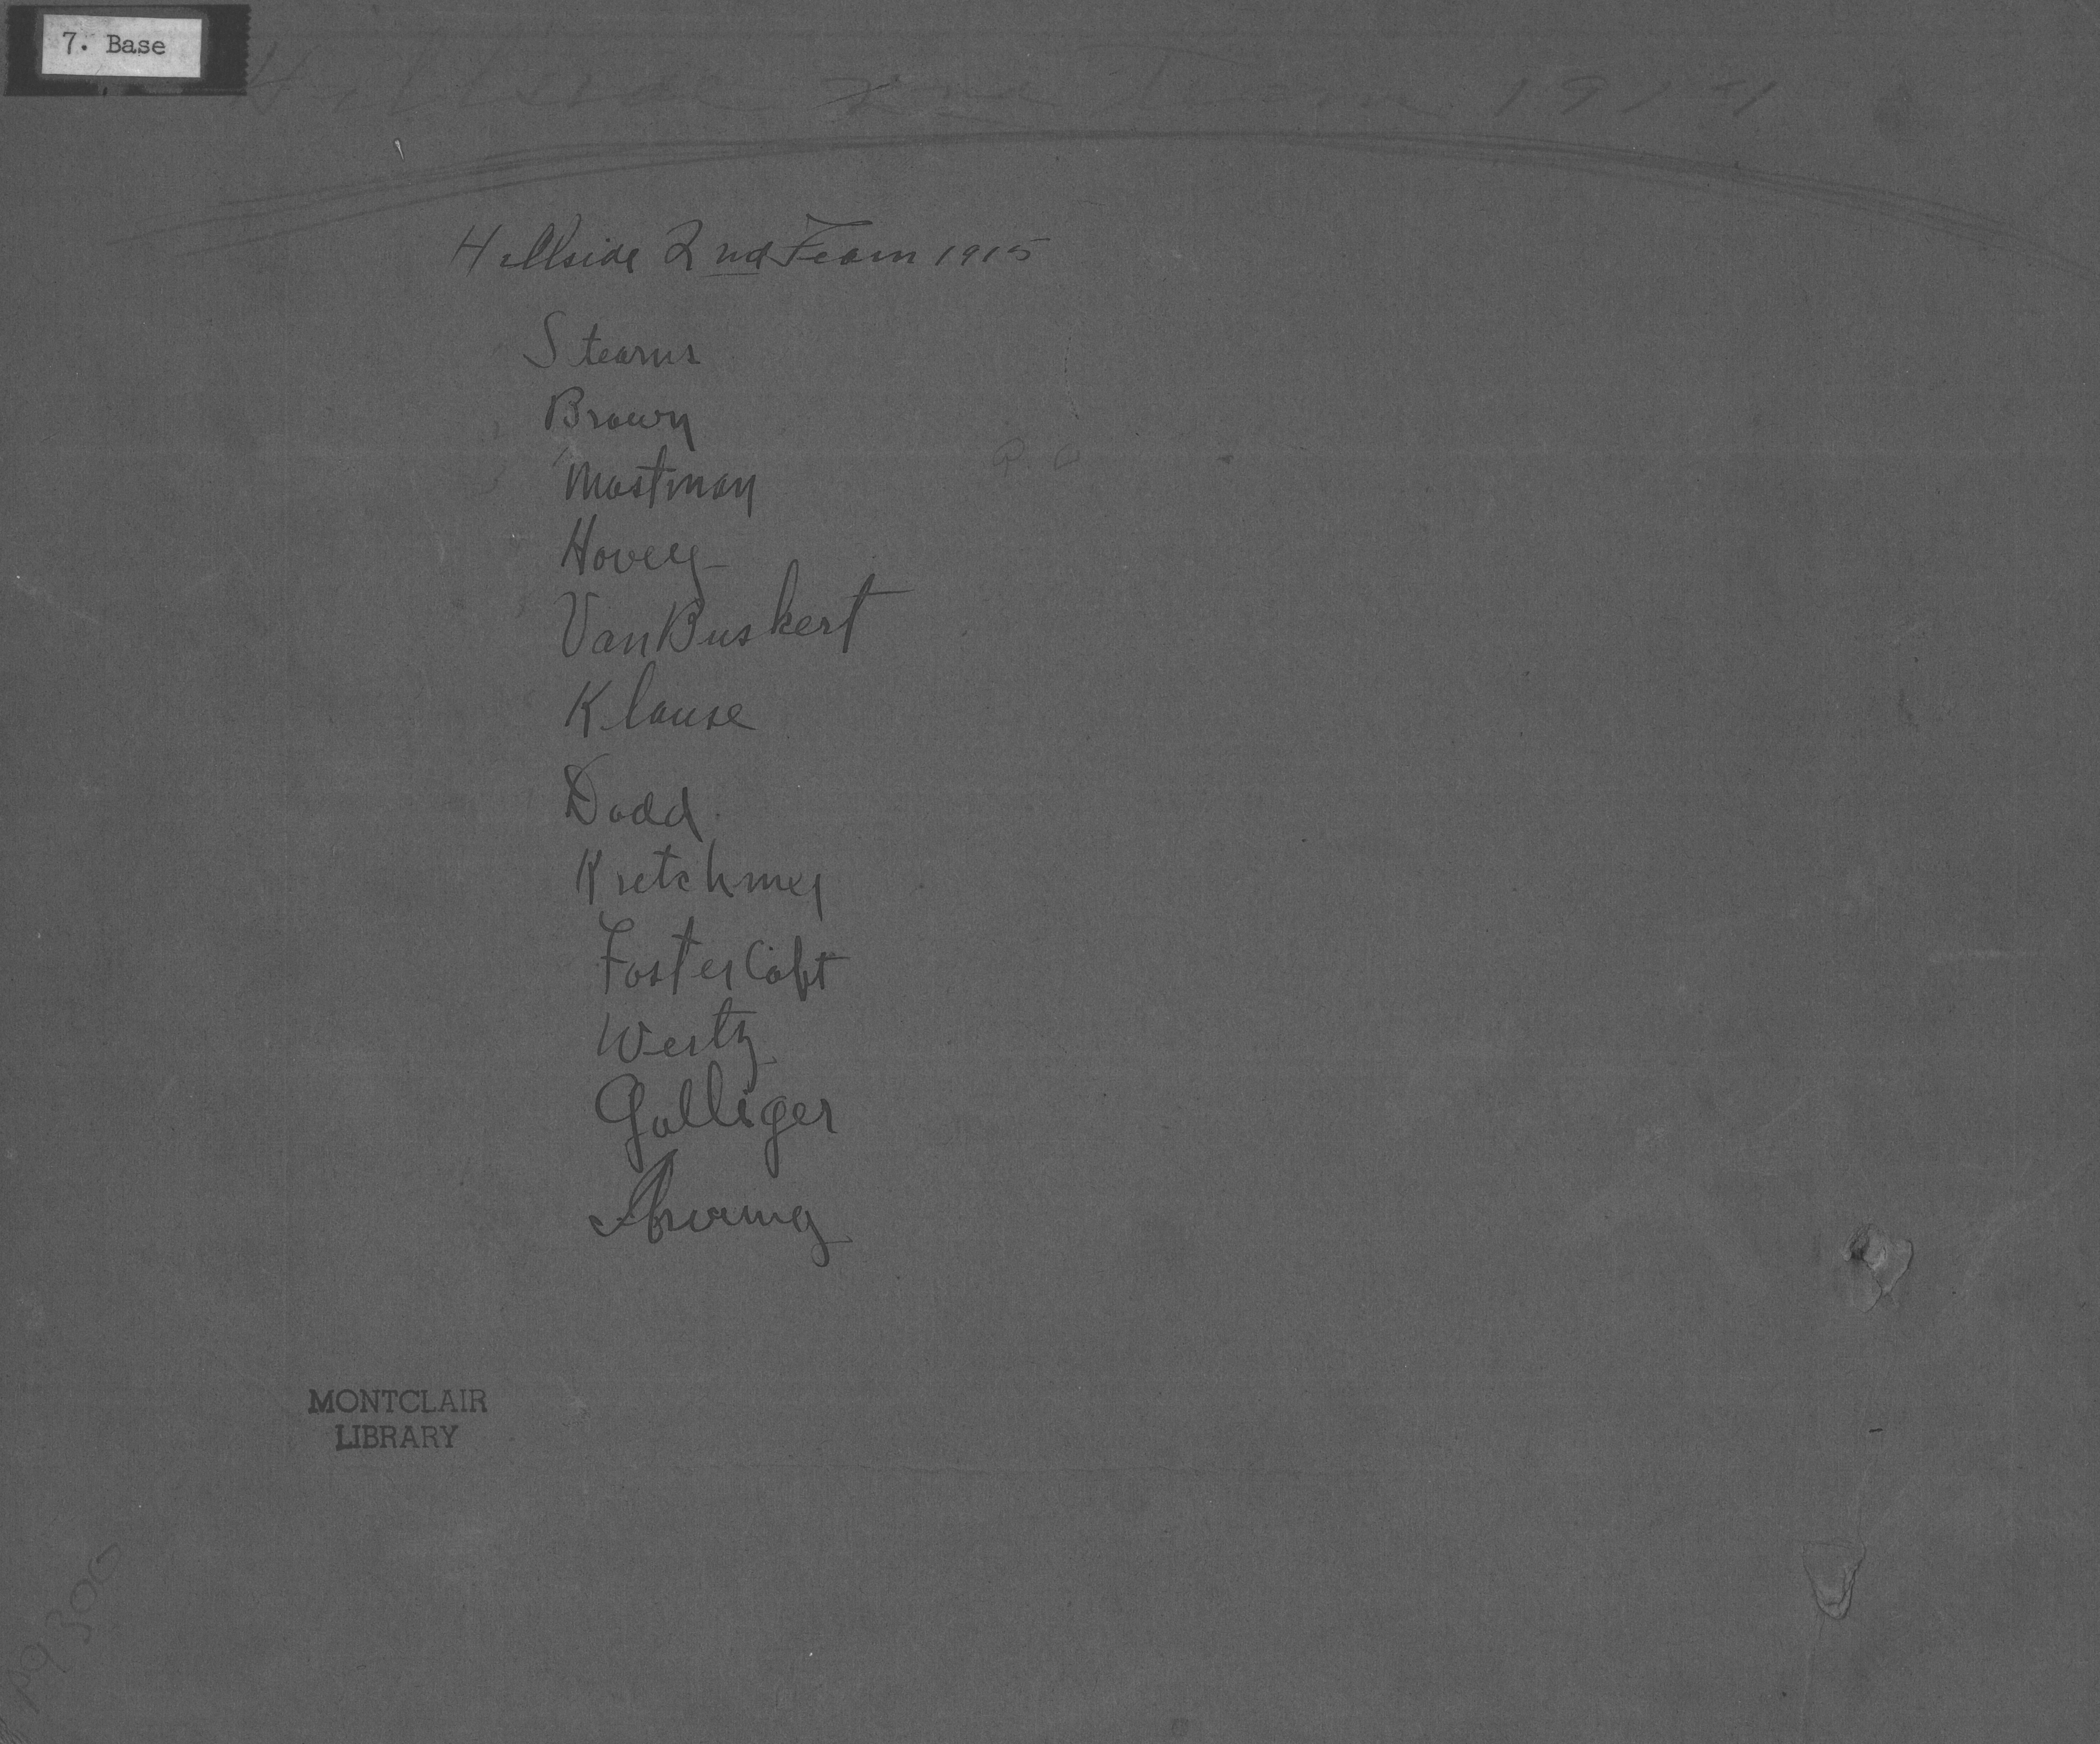 7. Base
Hillside 2nd Team 191
Hillside 2nd Team 1915
Stearns
Brown
Mastman
Hovey
VanBuskert
Klause
Dodd
Kretchmer
Foster Capt
Wertz
Galliger
MONTCLAIR
LIBRARY
pg 30G